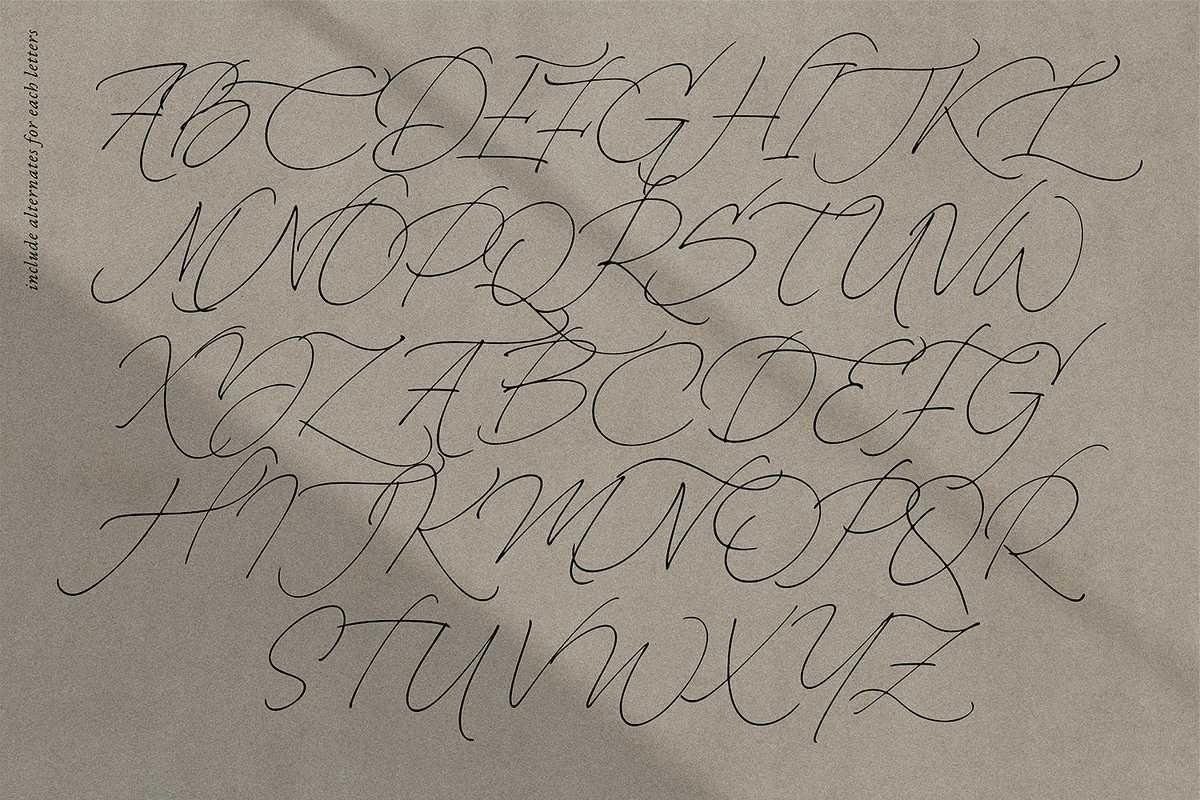 include alternates for each letters
ABCDEFGHIJKL
MNOPQRSTUVW
XYZABCDEFG
HIJKMNOPQR
STUVWXYZ